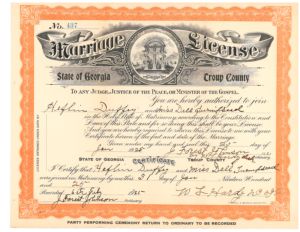 No. 487
Marriage License
State of Georgia Troup County
TO ANY JUDGE, JUSTICE OF THE PEACE, OR MINISTER OF THE GOSPEL.
You are hereby authorized to join
Heflin Duffey and Miss Dell
in the Holy State of Matrimony according to the Constitution and
Laws of this State and for so doing this shall be your
License. And you are hereby required to return this License to me with your
Certificate hereon of the fact and date of the Marriage.
Given under my hand and seal this
Forest Johnson
STATE OF GEORGIA CERTIFICATE
I Certify that Heflin Duffey and Miss Dell
were joined in Matrimony by me this 31 day of
J. Forest Johnson
PARTY PERFORMING CEREMONY RETURN TO ORDINARY TO BE RECORDED